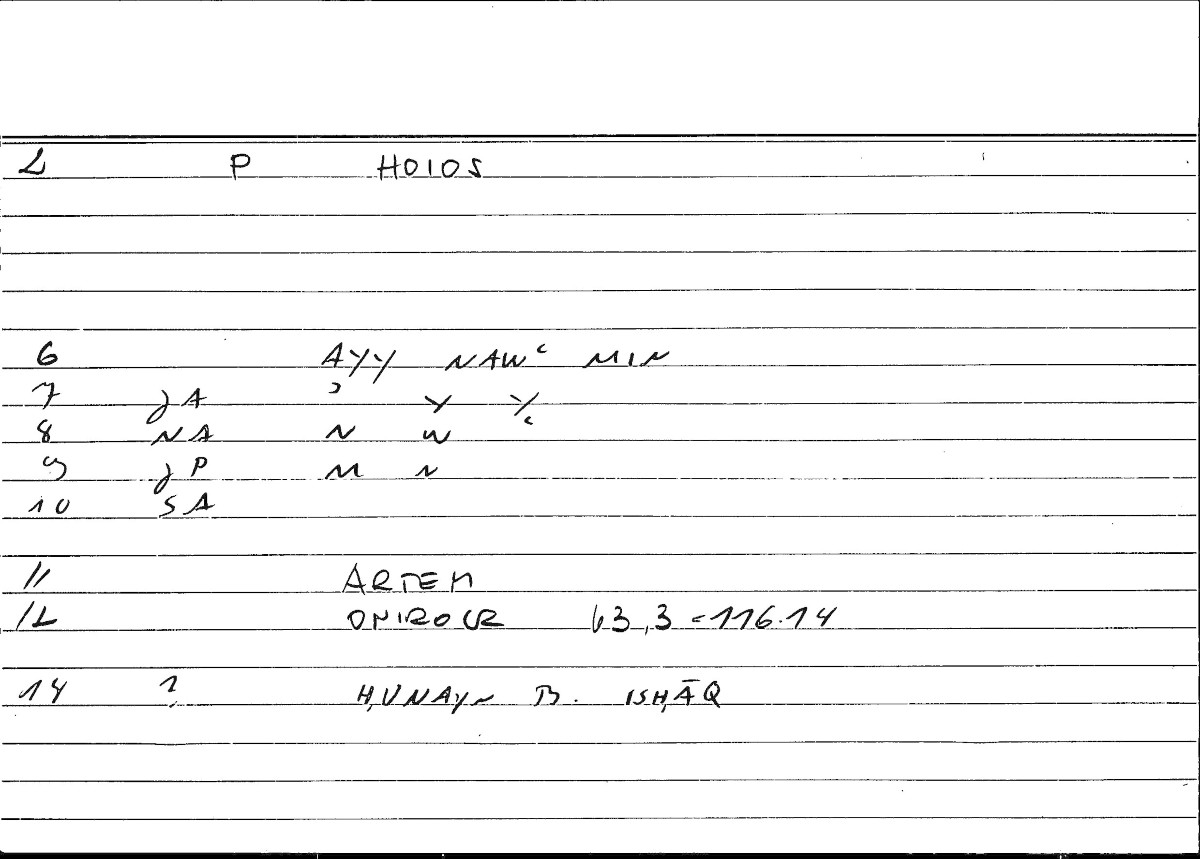 2 P HOIOS
6 AYY NAWʿ MIN
7 JA ʾ Y Yʿ
8 NA N W
9 JP M N
10 SA
11 ARTEM
12 ONIROCR 63,3 = 116.14
14 ? ḤUNAYN B. ISḤĀQ